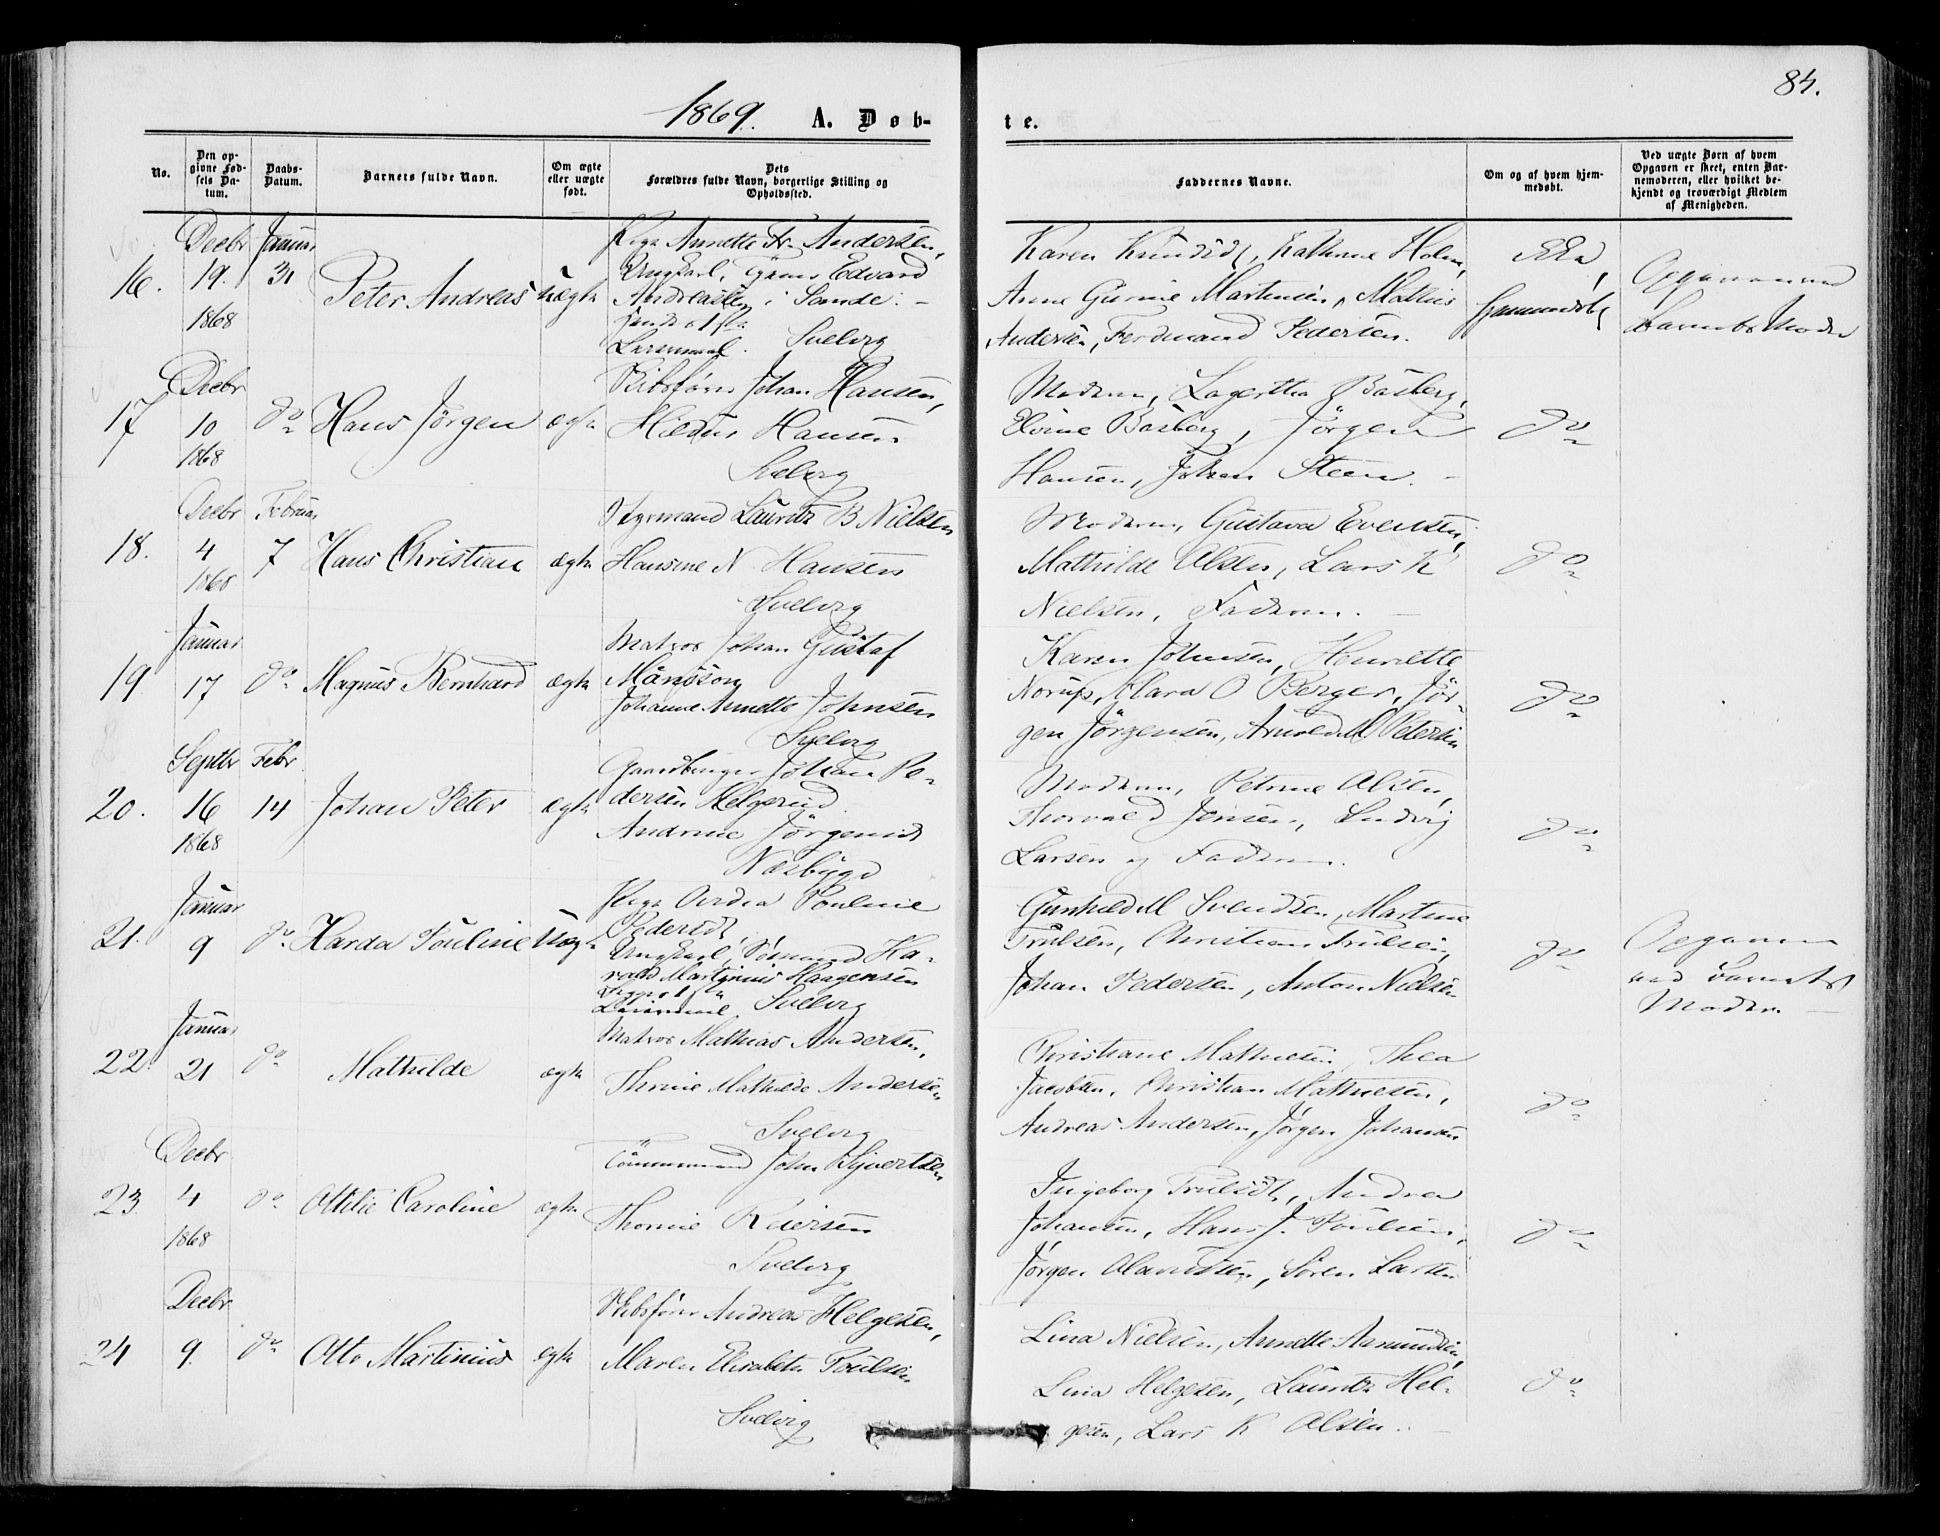 84.
1869. A. Døb-
te.
No.
Den op-
givne Fød-
sels Da-
tum.
Daabs-
Datum.
Barnets fulde Navn.
Om ægte
eller uægte
født.
Dets
Forældres fulde Navn, borgerlige Stilling og
Opholdssted.
Faddernes Navne.
Om og af hvem hjem-
medøbt.
Ved uægte Børn af hvem
Opgaven er skeet, enten Bar-
nemoderen, eller hvilket be-
kjendt og troværdigt Medlem
af Menigheden.
16.
Decbr
19.
1868
Januar
31
Peter Andreas
uægte
Pige Annette Fr. Andersen,
Ungkarl, Edvard
Andreasen i Sande. -
Leiermaal. Svelvig
Karen Knudsdt, Holm,
Anne Gurine Martinsen, Mathis
Andersen, Ferdinand Pedersen.
Opgaven ved
Barnets Moder
17
Decbr
10
1868
do
Hans Jörgen
ægte
Skibsfører Johan Hansen,
Hansen
Svelvig
Moderen, Lagertha Basberg,
Elvine Basberg, Jörgen
Hansen, Johan Steen. -
do
18.
Decbr
4
1868
Februar
7
Hans Christian
ægte
Styrmand Lauritz B Nielsen
Hansine N Hansen
Svelvig
Moderen, Gustava Evensen,
Mathilde Olsen, Lars K
Nielsen, Faderen. -
do
19
Januar
17
do
Magnus Bernhard
ægte
Matros Johan Gustaf
Månsson
Johanne Annette Johnsen
Svelvig
Karen Johnsen, Henriette
Norup, Clara O Berger, Jör-
gen Jörgensen, Arnold M Petersen
do
20.
Septbr
16
1868
Febr
14
Johan Peter
ægte
Gaardbruger Johan Pe-
dersen Helgerud
Andrine Jörgensdt
Næsbygd
Moderen, Petrine Olsen,
Thorvald Jensen, Ludvig
Larsen og Faderen.
do
21.
Januar
9
do
Harda Pouline
Uægte
Pige Andrea Pouline
Pedersdt,
Ungkarl, Sömand Ha-
rald Martinius Haagensen
Leiermaal. Svelvig
Gunhild M Svendsen, Martine
Trulsen, Christian Trulsen,
Johan Pedersen, Anton Nielsen
do
Opgaven
ved Barnets
Moder. -
22.
Januar
21
do
Mathilde
ægte
Matros Mathias Andersen,
Thrine Mathilde Andersen
Svelvig
Christiane Mathiesen, Thea
Jacobsen, Christian Mathiesen,
Andreas Andersen, Jörgen Johansen
do
23.
Decbr
4
1868
do
Ottilie Caroline
ægte
Tömmermand John Syvertsen
Thorine Reiersen
Svelvig
Ingeborg Trulsdt, Andrea
Johansen, Hans J. Poulsen,
Jörgen Olavesen, Sören Larsen
do
24
Decbr
9.
do
Otto Martinius
ægte
Skibsfører Andreas Helgesen,
Maren Elisabeth Poulsen
Svelvig
Lina Nielsen, Annette Asmundsen,
Lina Helgesen, Lauritz Hel-
gesen, Lars K Olsen. -
do